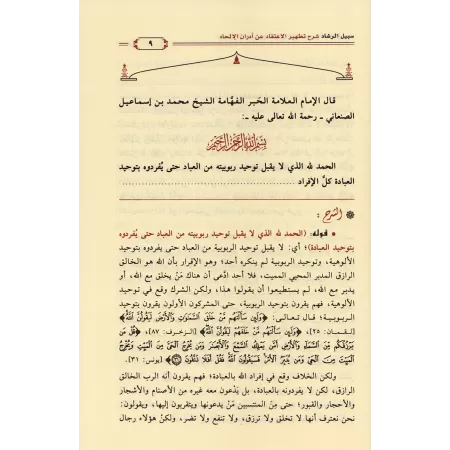 سبيل الرشاد شرح تطهير الاعتقاد عن أدران الإلحاد
٩
قال الإمام العلامة الحَبر الفهَّامة الشيخ محمد بن إسماعيل
الصنعاني - رحمة الله تعالى عليه -:
بسم الله الرحمن الرحيم
الحمد لله الذي لا يقبل توحيد ربوبيته من العباد حتى يُفردوه بتوحيد
العبادة كلَّ الإفراد
الشرح :
• قوله: (الحمد لله الذي لا يقبل توحيد ربوبيته من العباد حتى يُفردوه
بتوحيد العبادة)؛ أي: لا يقبل توحيد الربوبية من العباد حتى يفردوه بتوحيد
الألوهية، وتوحيد الربوبية لم ينكره أحد؛ وهو الإقرار بأن الله هو الخالق
الرازق المدبر المحيي المميت، فلا أحد ادَّعى أن هناك مَنْ يخلق مع الله، أو
يدبر مع الله، لم يستطيعوا أن يقولوا هذا، ولكن الشرك وقع في توحيد
الألوهية، فهم يقرون بتوحيد الربوبية، حتى المشركون الأولون يقرون بتوحيد
الربوبية؛ قال تعالى: ﴿وَلَئِن سَأَلْتَهُم مَّنْ خَلَقَ السَّمَاوَاتِ وَالْأَرْضَ لَيَقُولُنَّ اللَّهُ﴾
[لقمان: ٢٥]، ﴿وَلَئِن سَأَلْتَهُم مَّنْ خَلَقَهُمْ لَيَقُولُنَّ اللَّهُ﴾ [الزخرف: ٨٧]، ﴿قُلْ مَن
يَرْزُقُكُم مِّنَ السَّمَاءِ وَالْأَرْضِ أَمَّن يَمْلِكُ السَّمْعَ وَالْأَبْصَارَ وَمَن يُخْرِجُ الْحَيَّ مِنَ الْمَيِّتِ وَيُخْرِجُ
الْمَيِّتَ مِنَ الْحَيِّ وَمَن يُدَبِّرُ الْأَمْرَ فَسَيَقُولُونَ اللَّهُ فَقُلْ أَفَلَا تَتَّقُونَ﴾ [يونس: ٣١].
ولكن الخلاف وقع في إفراد الله بالعبادة؛ فهم يقرون أنه الرب الخالق
الرازق، لكن لا يفردونه بالعبادة، بل يَدْعون معه غيره من الأصنام والأشجار
والأحجار والقبور؛ حتى مِنَ المنتسبين مَنْ يدعونها ويتقربون إليها، ويقولون:
نحن نعترف أنها لا تخلق ولا ترزق، ولا تنفع ولا تضر، ولكنْ هؤلاء رجال